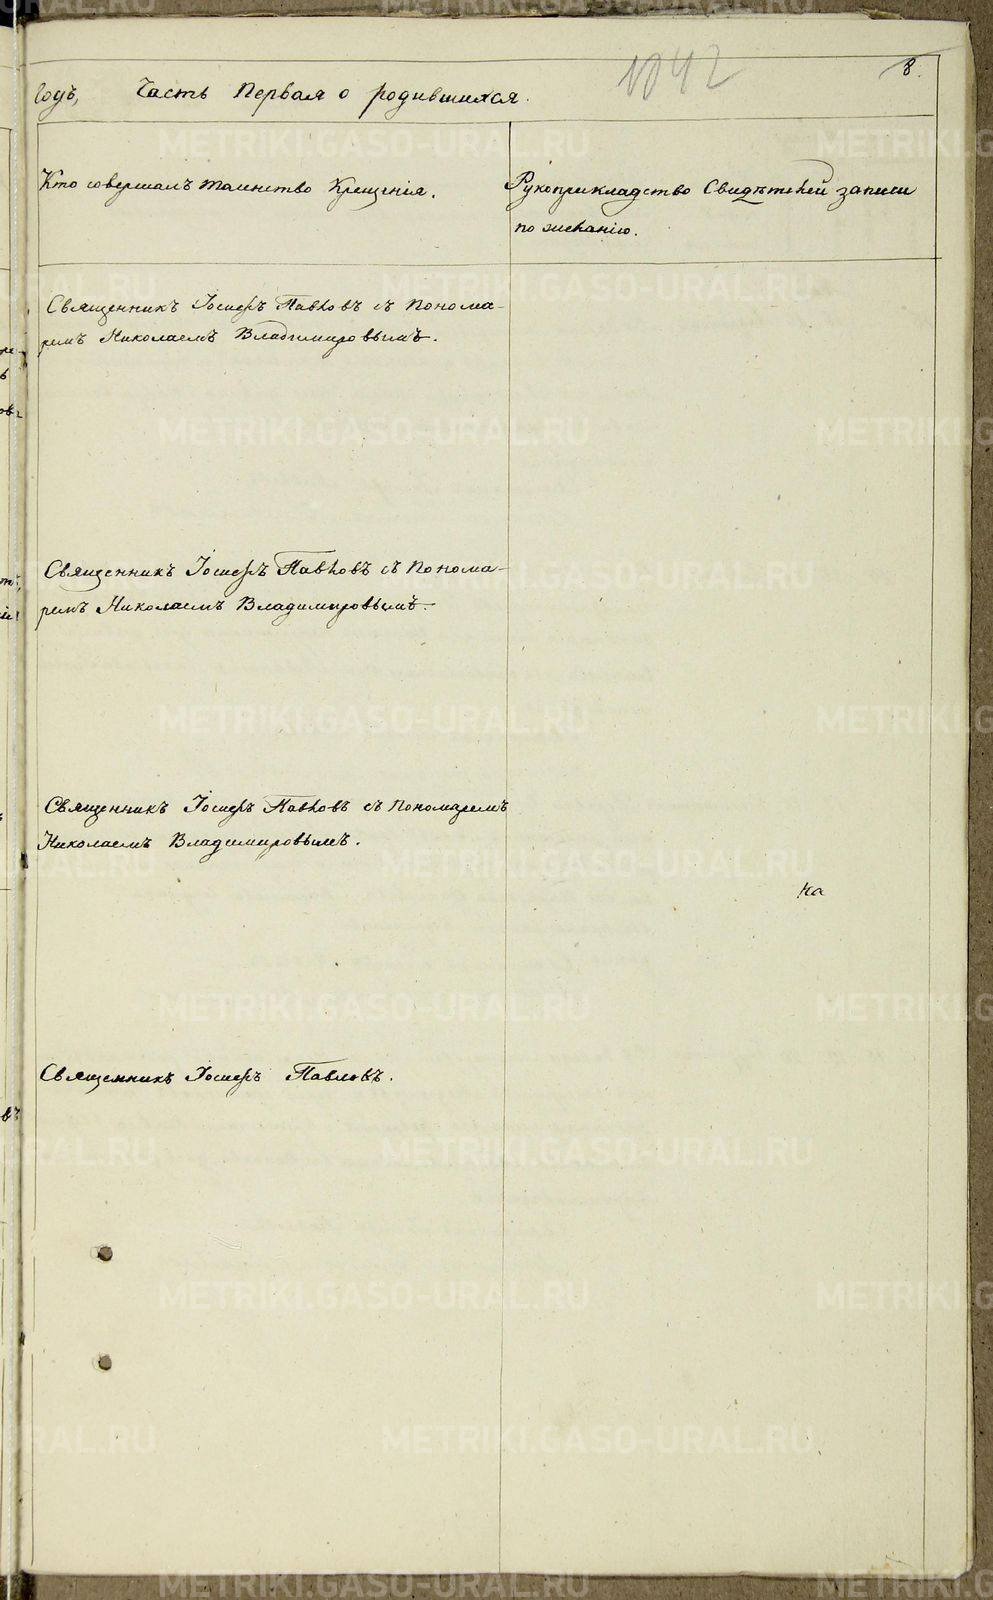 1042
8.
Годъ, Часть Первая о родившихся.
Кто совершалъ таинство Крещенія.
Рукоприкладство Свидѣтелей записи
по желанію.
Священникъ Іосифъ Павловъ съ Понома-
ремъ Николаемъ Владимировымъ.
Священникъ Іосифъ Павловъ съ Понома-
ремъ Николаемъ Владимировымъ.
Священникъ Іосифъ Павловъ съ Пономаремъ
Николаемъ Владимировымъ.
на
Священникъ Іосифъ Павловъ.
METRIKI.GASO-URAL.RU